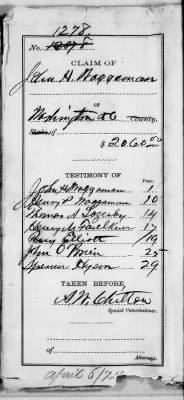 1278.
No. 10078
CLAIM OF
John H. Waggaman
OF
Washington DC County,
State of
$2060.00
TESTIMONY OF
Page
John H Waggaman 1
Henry P. Waggaman 10
Thomas A. Lazenby 14
Henry M Faulkner 17
Perry Elliott 19
John O'Brien 25
Spencer Hyson 29
TAKEN BEFORE
A. W. Chilton
Special Commissioner.
of
Attorneys.
April 6/74